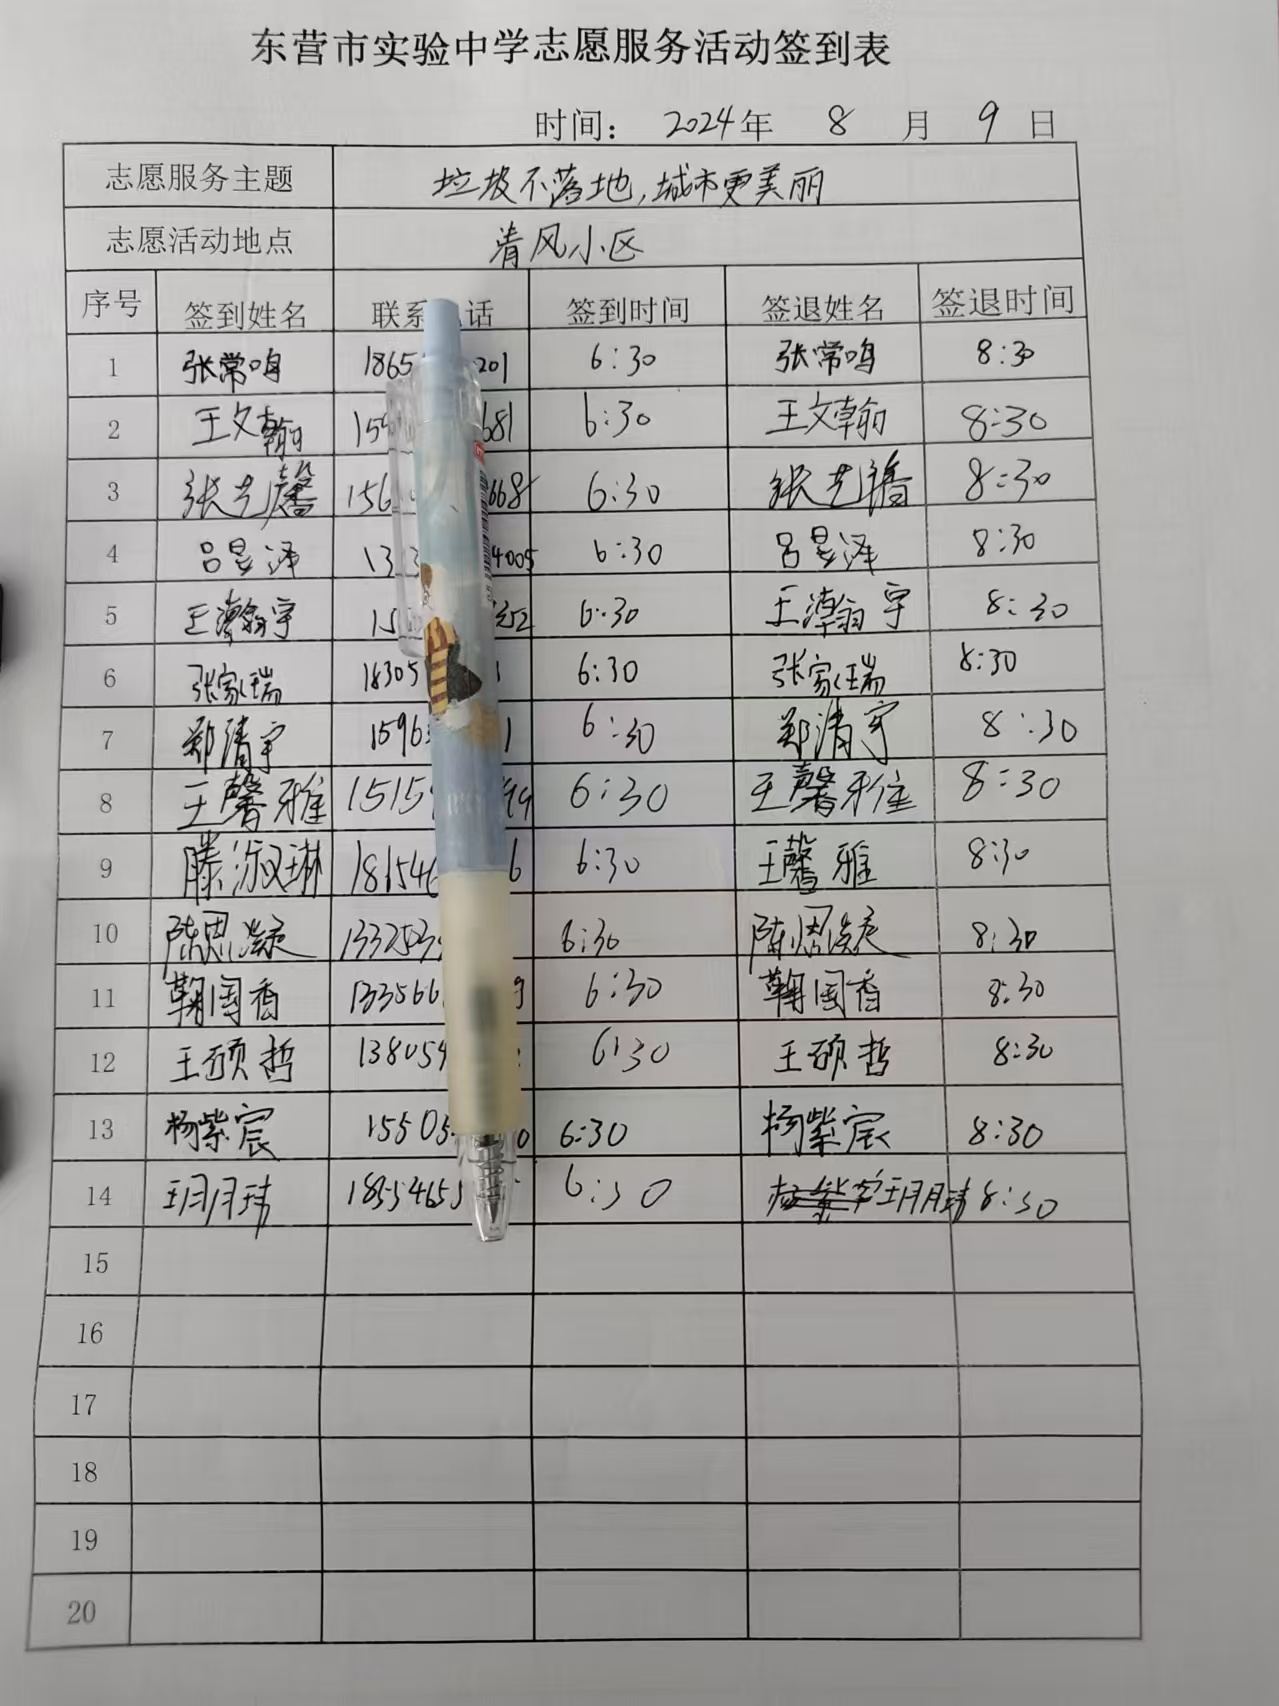 东营市实验中学志愿服务活动签到表
时间： 2024年 8 月 9 日
志愿服务主题 垃圾不落地,城市更美丽
志愿活动地点 清风小区
序号 签到姓名 联系 话 签到时间 签退姓名 签退时间
1 张常鸣 1865 201 6:30 张常鸣 8:30
2 王文翰 15 681 6:30 王文翰 8:30
3 张艺馨 156 668 6:30 张艺馨 8:30
4 吕昱泽 13 4005 6:30 吕昱泽 8:30
5 王瀚宇 15 352 6:30 王瀚宇 8:30
6 张家瑞 18305 6:30 张家瑞 8:30
7 郑清宇 1596 1 6:30 郑清宇 8:30
8 王馨雅 1515 99 6:30 王馨雅 8:30
9 滕淑琳 181546 6 6:30 王馨雅 8:30
10 陈思凝 133253 6:30 陈思凝 8:30
11 鞠国香 133566 9 6:30 鞠国香 8:30
12 王硕哲 138054 6:30 王硕哲 8:30
13 杨紫宸 15505 0 6:30 杨紫宸 8:30
14 王玥玮 18954653 6:30 王玥玮 8:30
15
16
17
18
19
20